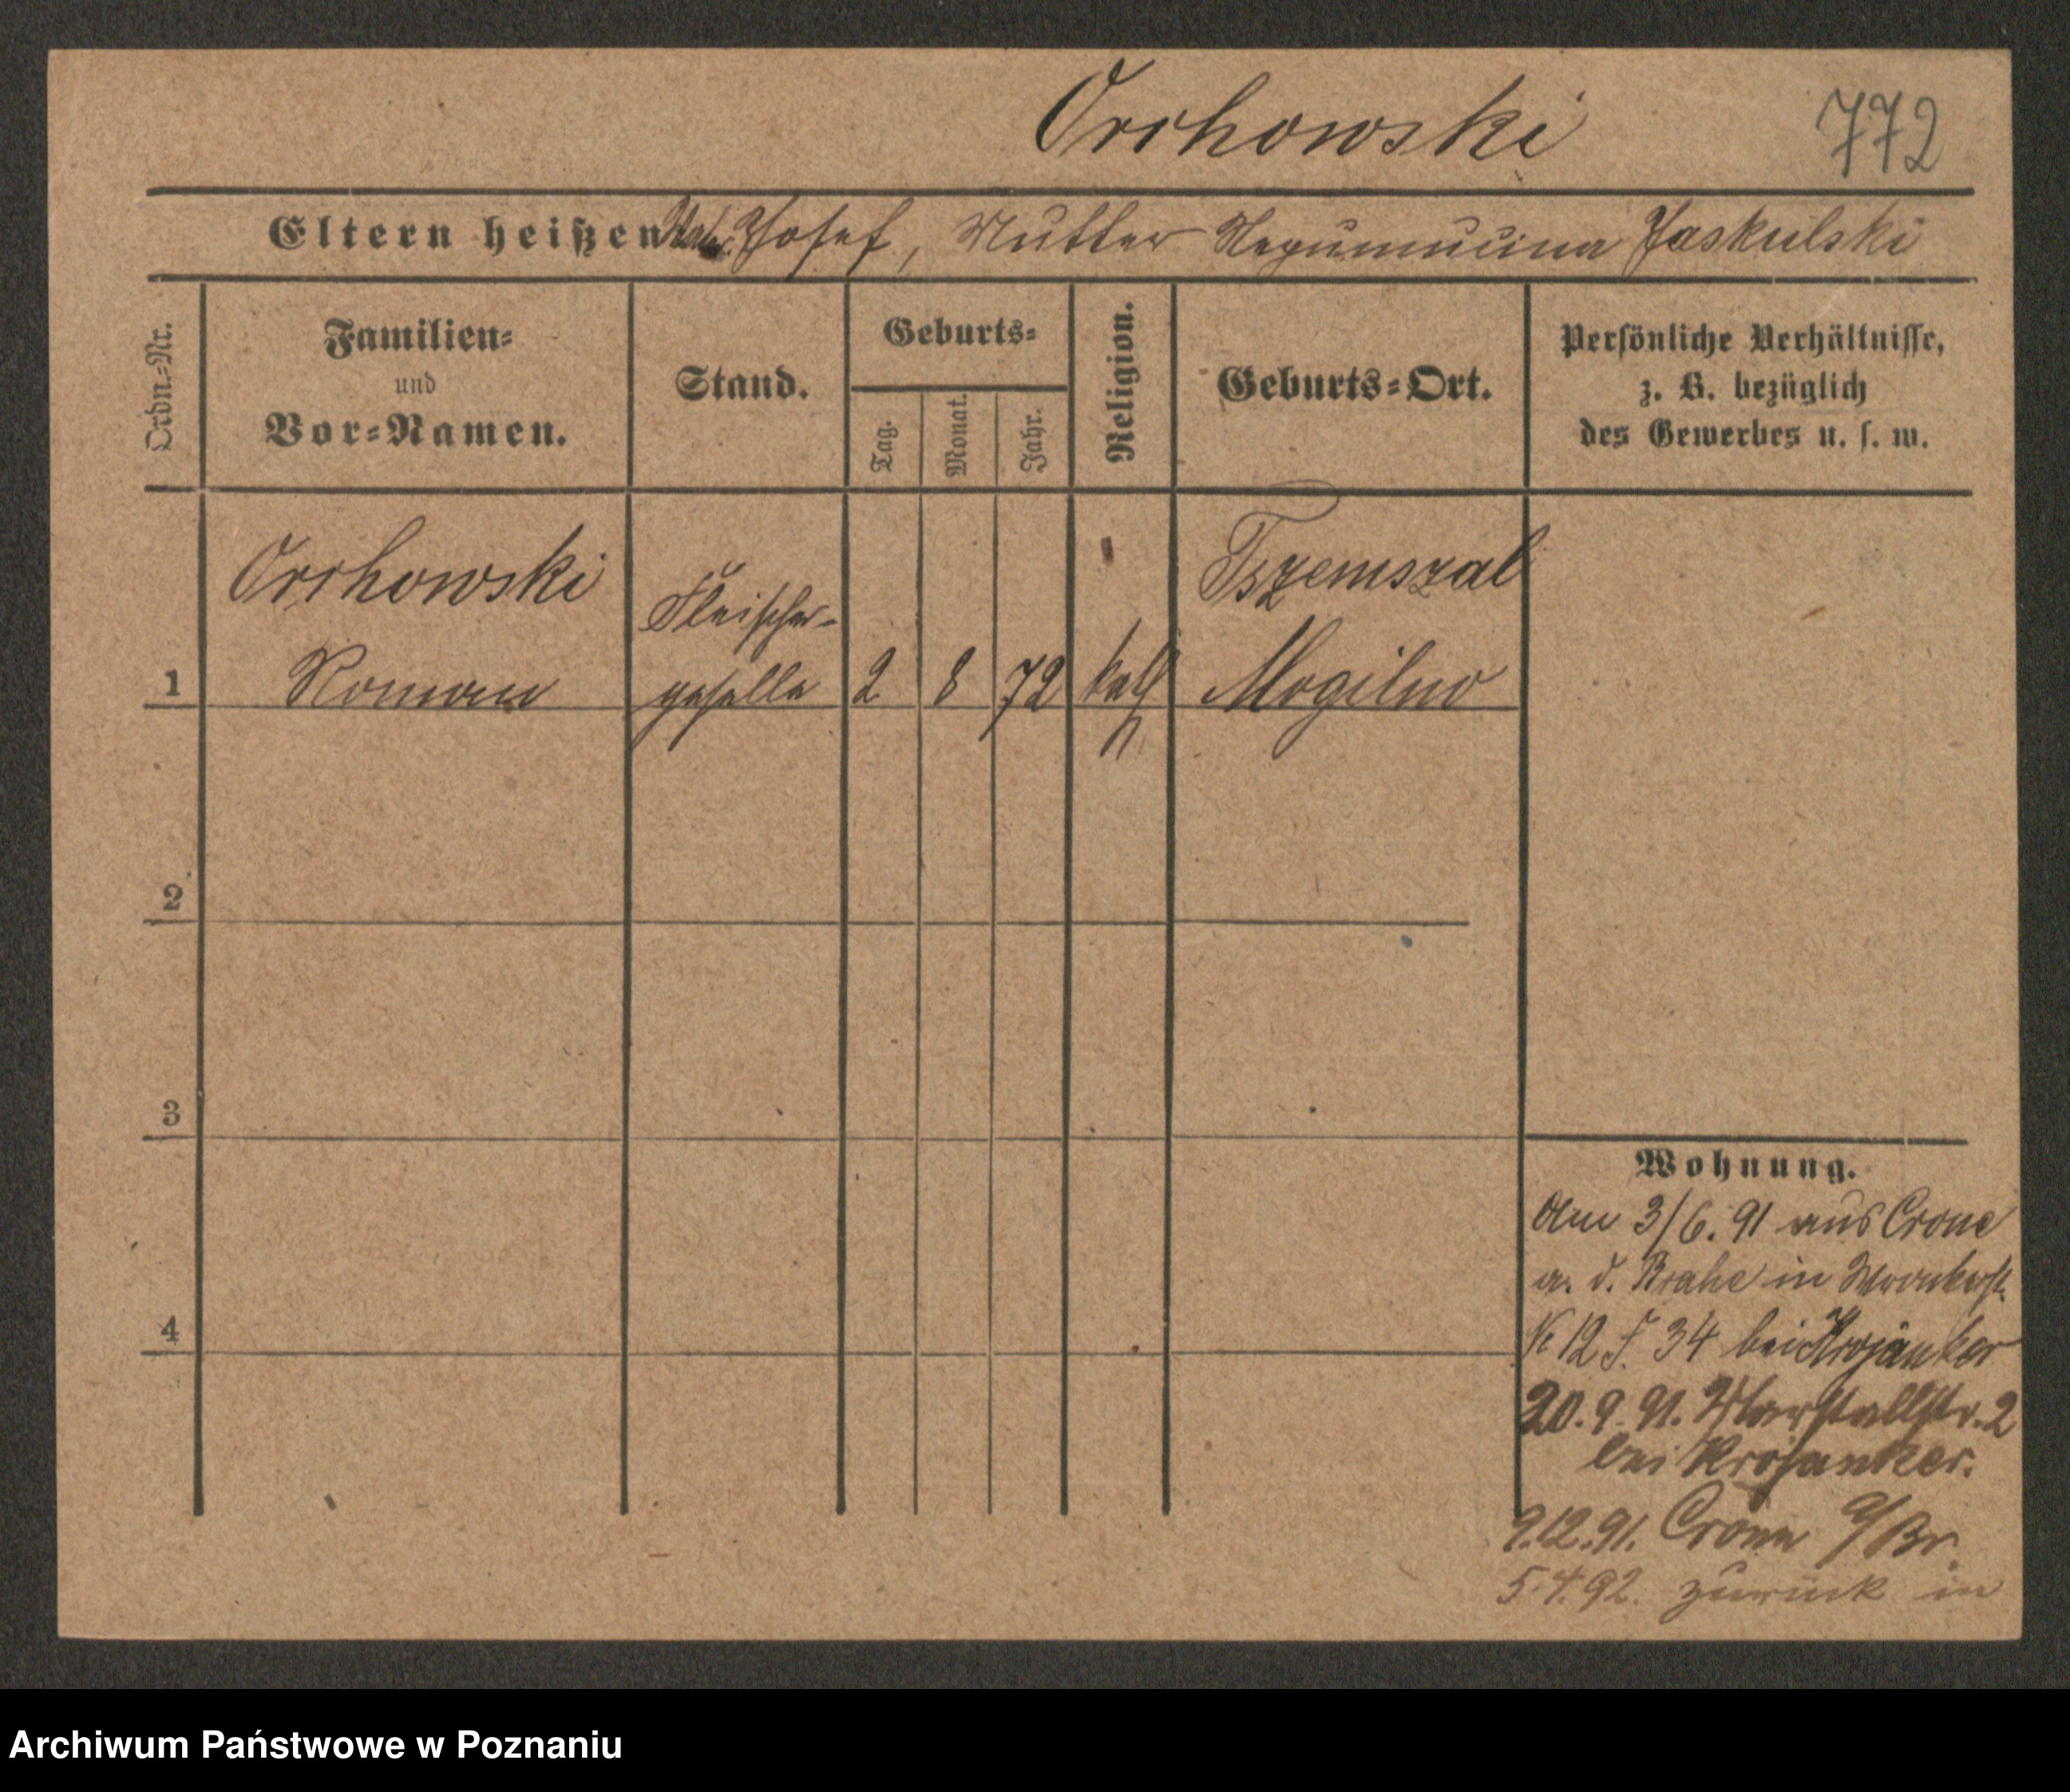 Orchowski 772
Eltern heißen Vat. Josef, Mutter Nepumucina Jaskulski
Ordn.-Nr.
Familien-
und
Vor-Namen.
Stand.
Geburts-
Tag.
Monat.
Jahr.
Religion.
Geburts-Ort.
Persönliche Verhältnisse,
z. B. bezüglich
des Gewerbes u. s. w.
Orchowski Fleischer- Tszemszal
1 Roman geselle 2 8 72 kath Mogilno
2
3
4
Wohnung.
Am 3/6. 91 aus Crone
a. d. Brahe in Wronkerst.
No 12 F. 34 bei Krojanker
20. 9. 91. Marstallstr. 2
bei Krojanker.
9.12.91. Crone a/Br.
5.4.92. zurück in
Archiwum Państwowe w Poznaniu